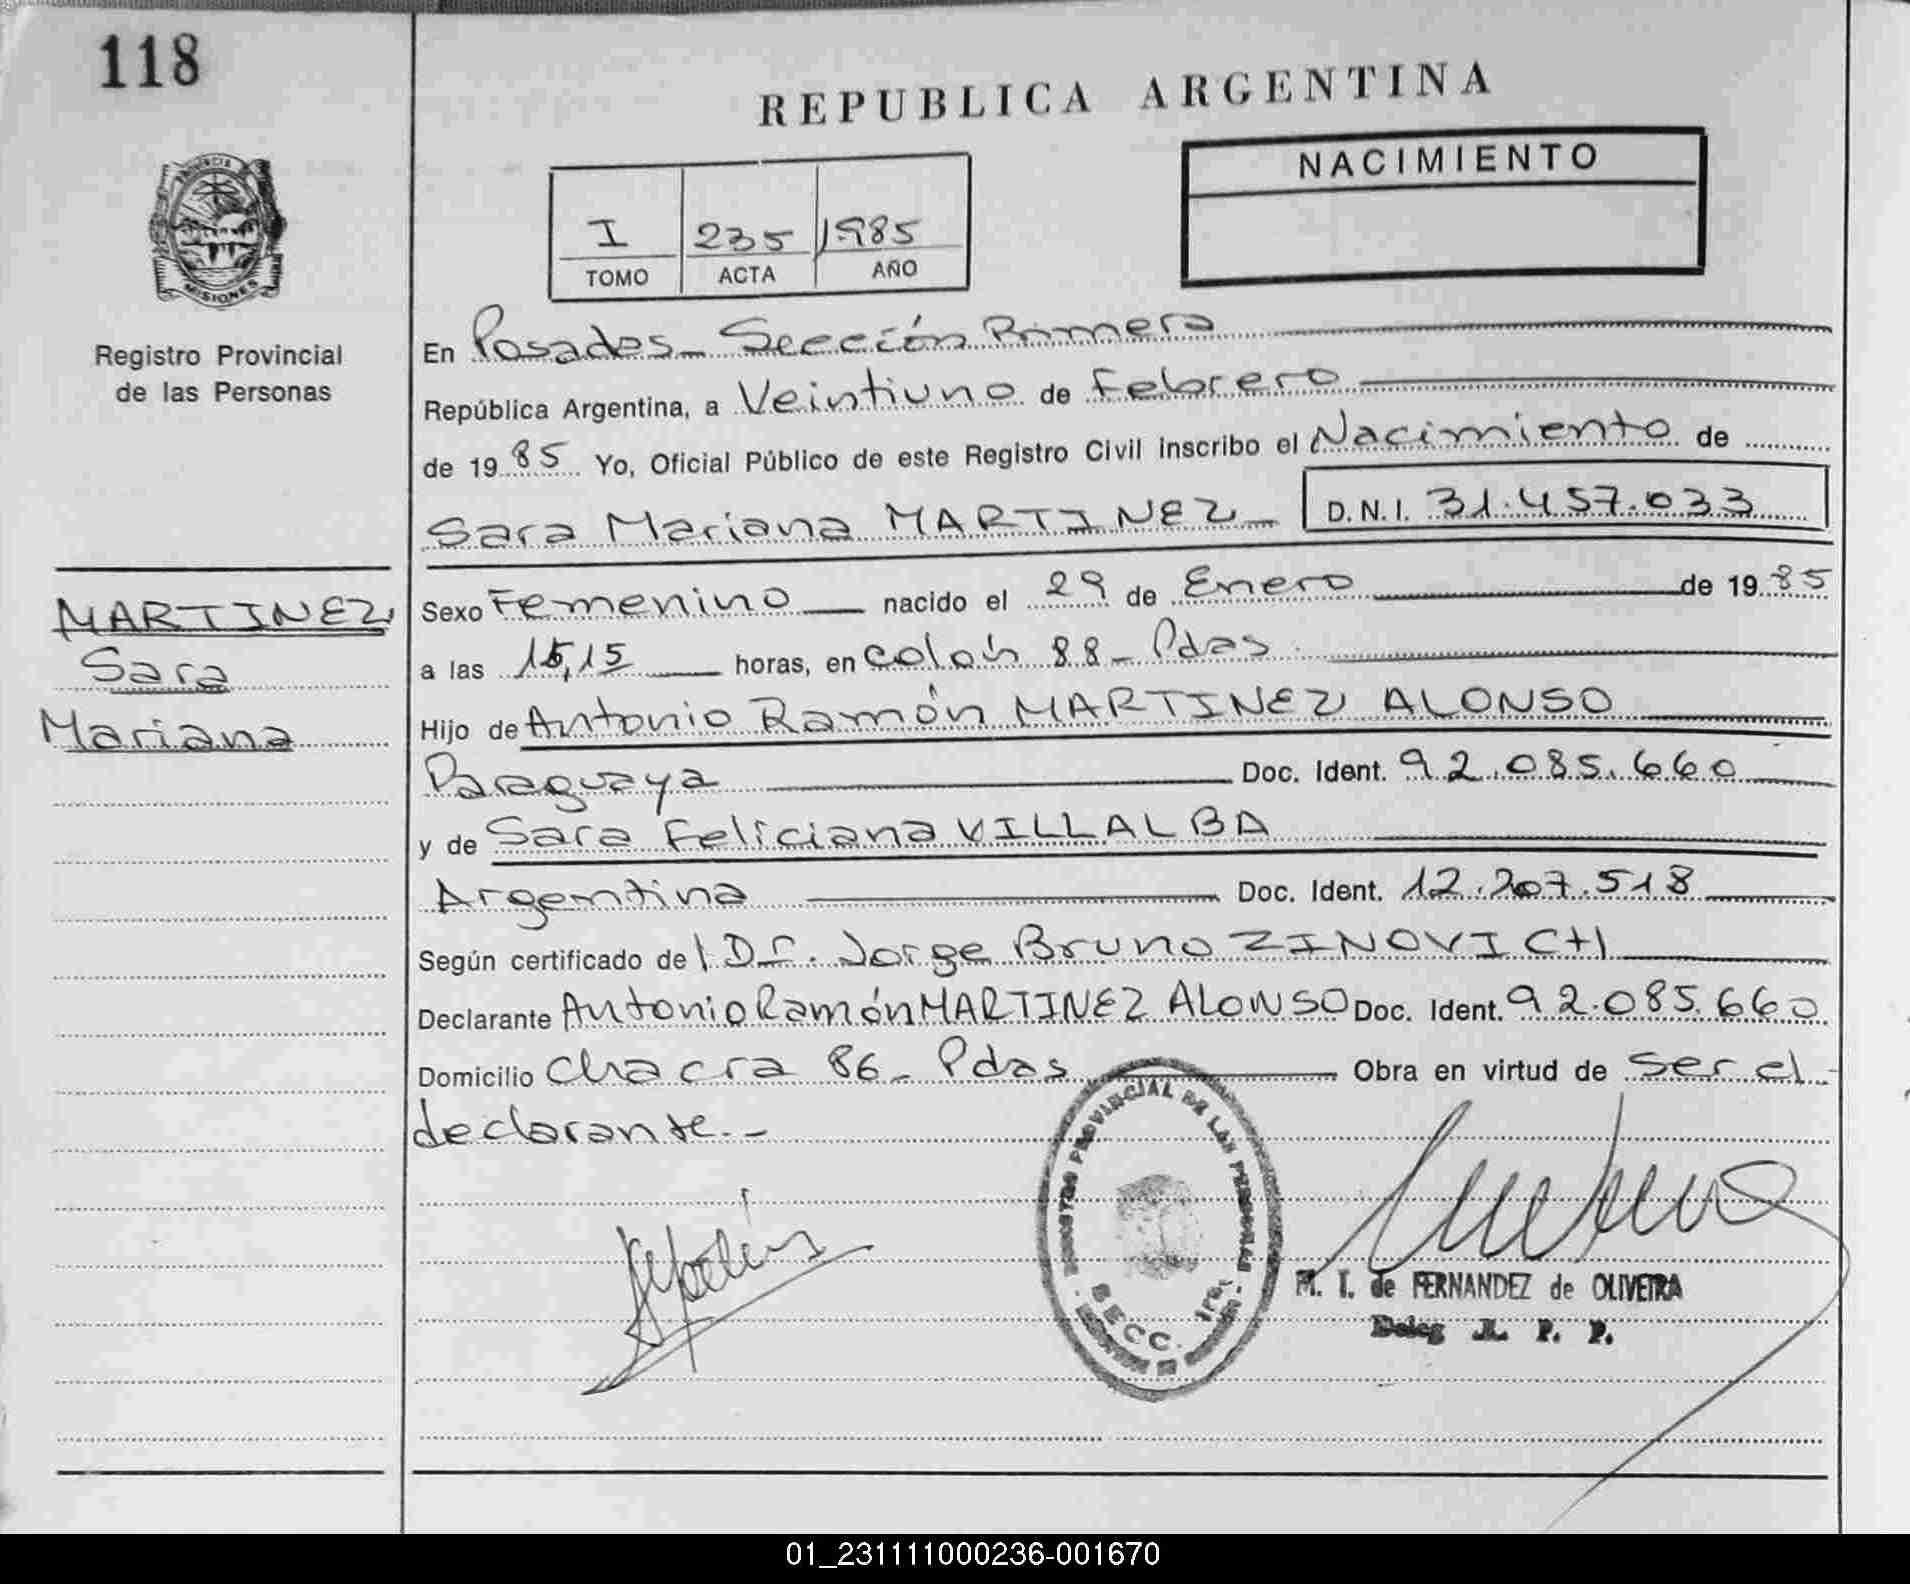 118
REPUBLICA ARGENTINA
NACIMIENTO
I 235 1985
TOMO ACTA AÑO
PROVINCIA
MISIONES
Registro Provincial
de las Personas
En Posadas - Sección Primera
República Argentina, a Veintiuno de Febrero
de 19 85 Yo, Oficial Público de este Registro Civil inscribo el Nacimiento de
Sara Mariana MARTINEZ D.N.I. 31.457.033
MARTINEZ
Sara
Mariana
Sexo Femenino nacido el 29 de Enero de 19 85
a las 15,15 horas, en Colón 88 - Pdas
Hijo de Antonio Ramón MARTINEZ ALONSO
Paraguaya Doc. Ident. 92.085.660
y de Sara Feliciana VILLALBA
Argentina Doc. Ident. 12.207.518
Según certificado del Dr. Jorge Bruno ZINOVICH
Declarante Antonio Ramón MARTINEZ ALONSO Doc. Ident. 92.085.660
Domicilio Chacra 86 - Pdas Obra en virtud de ser el
declarante.-
REGISTRO PROVINCIAL DE LAS PERSONAS
SECC. 1ra.
M. I. de FERNANDEZ de OLIVEIRA
Deleg R. P. P.
01_231111000236-001670